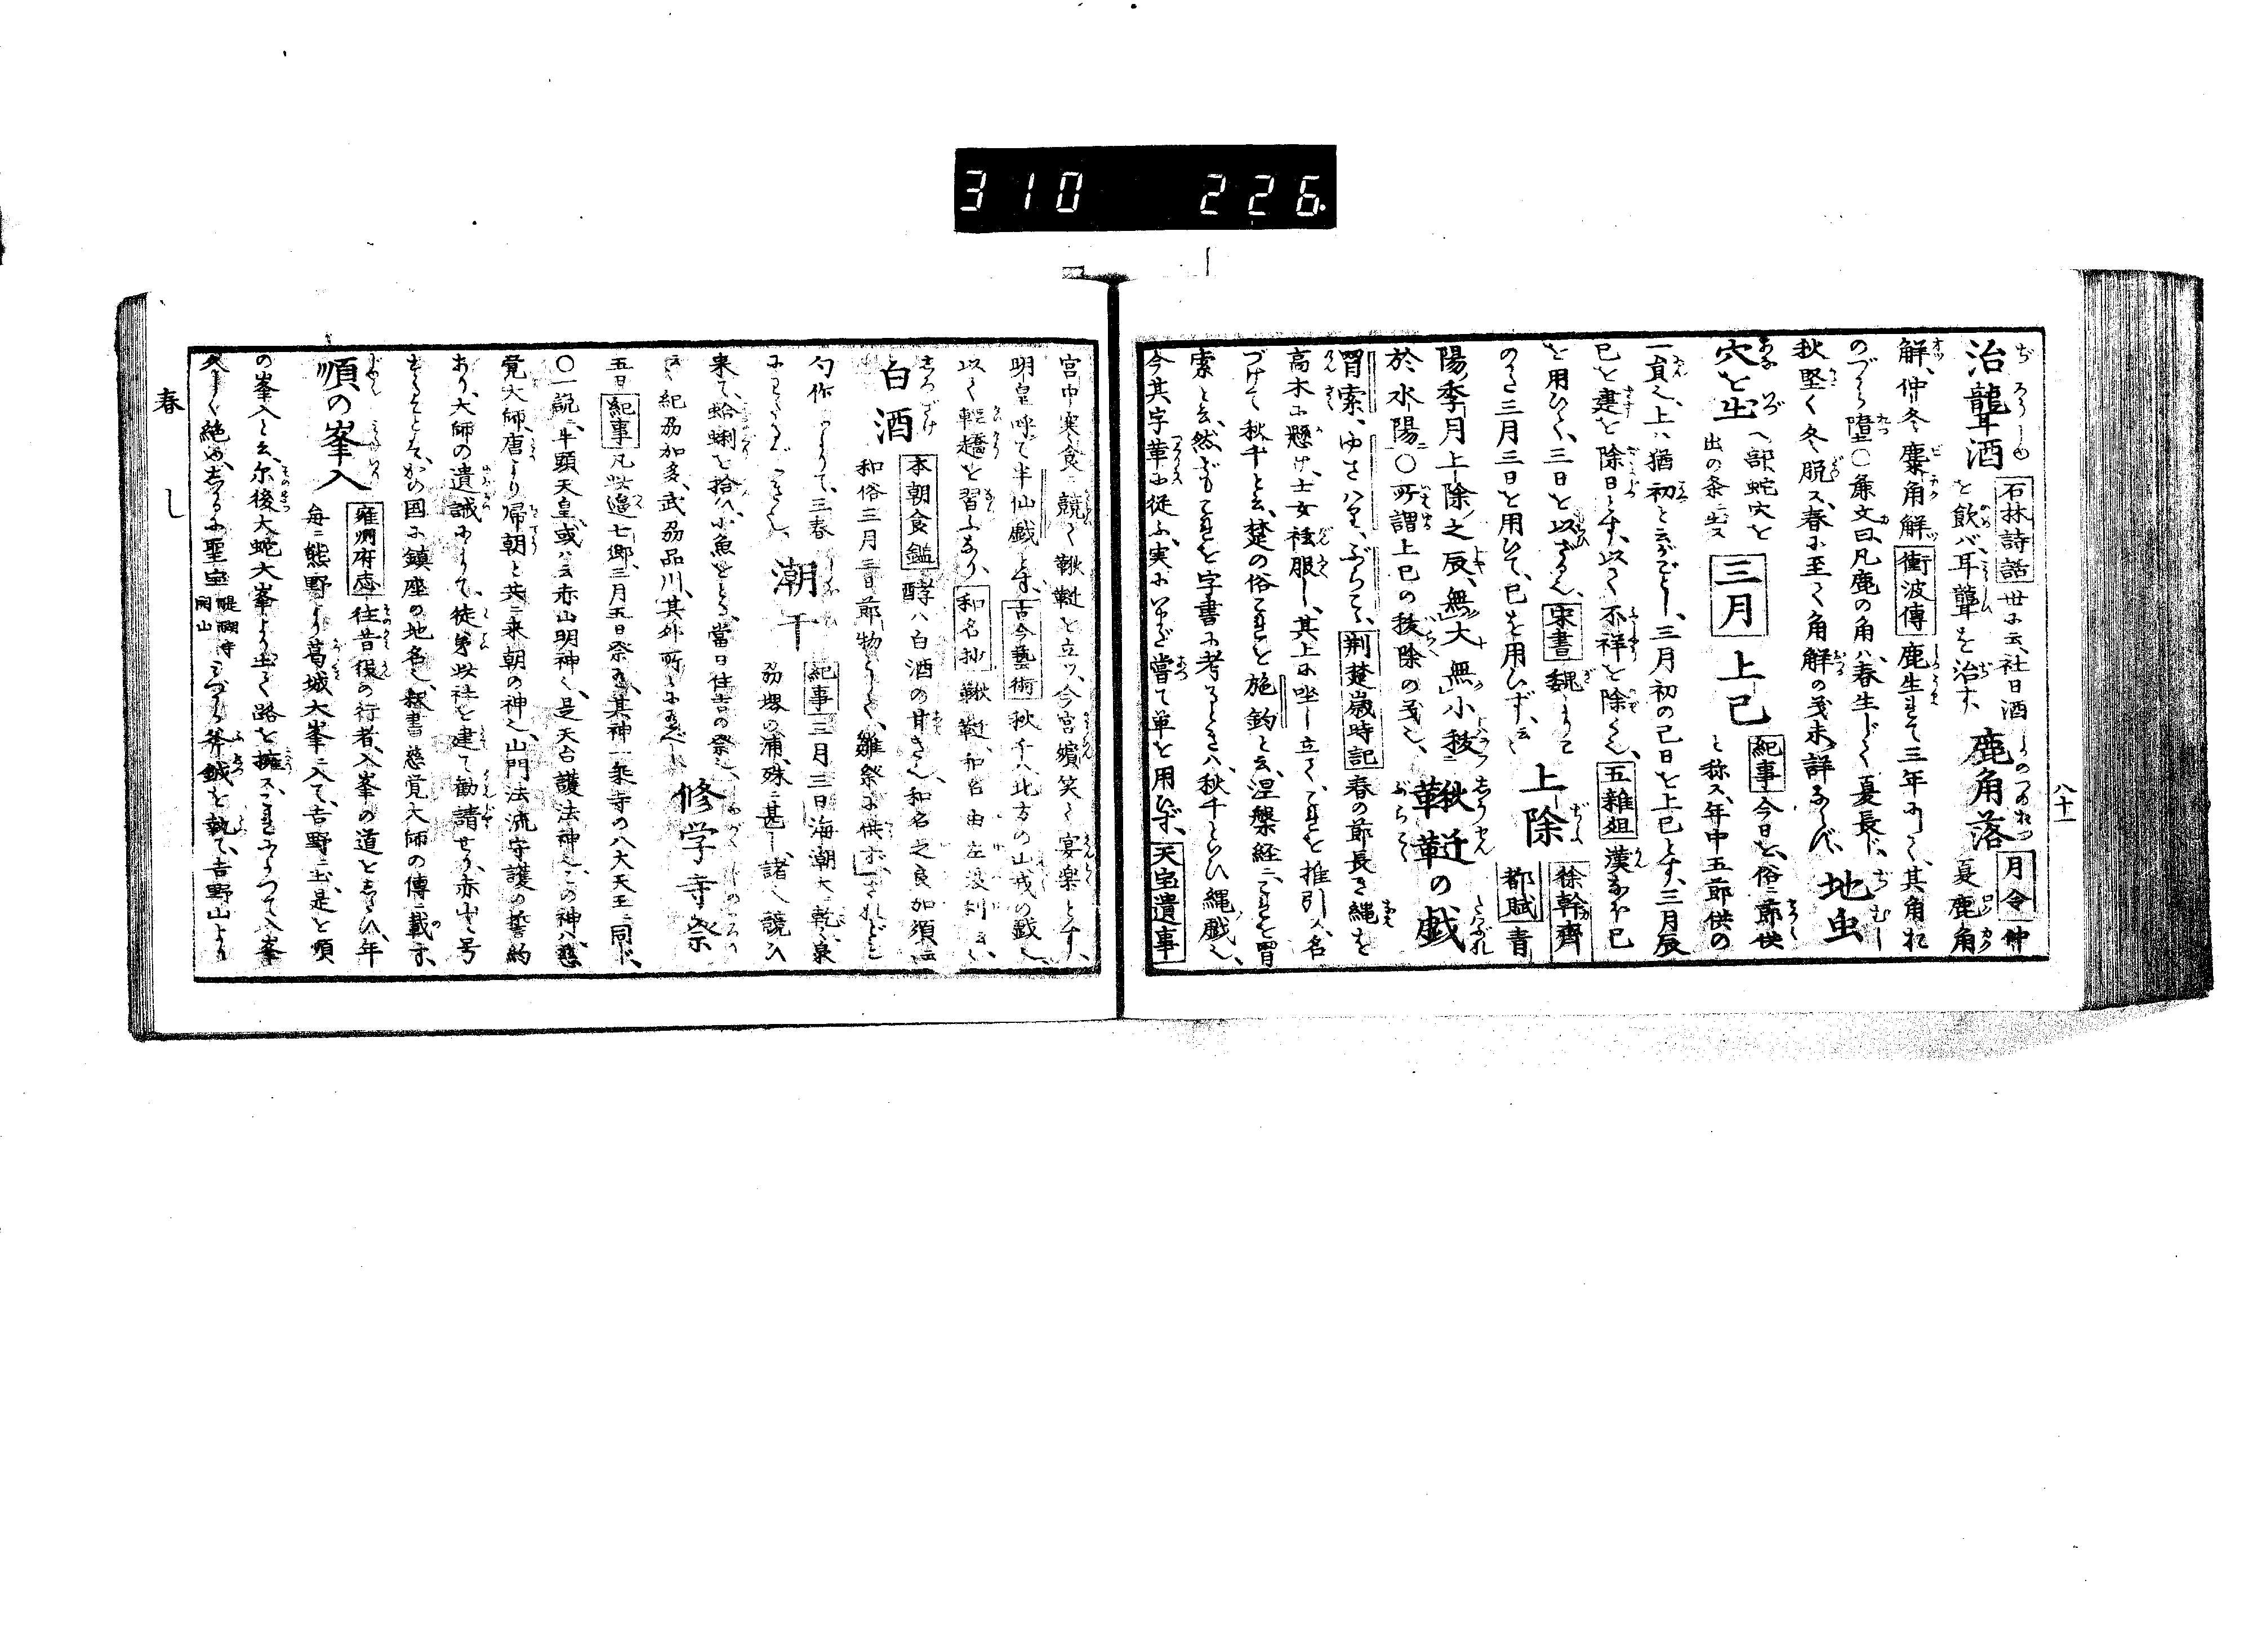 310 226
八十一
治聾酒 石林詩話 世に云、社日酒
を飲バ耳聾を治す 鹿角落 月令 仲
夏鹿角
解、仲冬麋角解 衝波傳 鹿生れて三年にして、其角おのづから
墮○ 文曰、凡鹿の角ハ、春生じて夏長ず、
秋堅く冬脱ス、春に至て角解の義未詳ならず、 地虫
穴を出 へ部蛇穴を
出の条ニ出ス 三月 上巳 紀事 今日を、俗ニ節供
と称ス、年中五節供の
一員也、上ハ猶初と云がごとし、三月初の巳日を上巳とす、三月辰
巳を建を除日とす、以て不祥を除く也、 五雜俎 漢なほ巳
を用ひて、三日を以せざる也、 宋書 魏よりして
のち三月三日を用ひて、巳を用ひず、云々 上除 徐幹齊
都賦 青
陽季月上除之辰、無大無小祓
於水陽○所謂上巳の祓除の義也、 鞦韆の戯
罥索、ゆさはり、ぶらこ、 荊楚歳時記 春の節長き縄を
高木に懸け、士女袨服し、其上に坐し立て、これを推引ス、名
づけて秋千と云、楚の俗これを施鈎と云、涅槃経ニこれを罥
索と云、然どもこれを字書に考るときハ、秋千といひ縄戯也、
今其字革に従ふ、実にいまだ嘗て単を用ひず、 天宝遺事
宮中寒食ニ競て鞦韆を立ツ、今宮嬪笑て宴楽とす、
明皇呼て半仙戯とす、 古今藝術 秋千ハ北方の山戎の戯也、
以て軽趫を習ふなり、 和名抄 鞦韆、和名由左波利
白酒 本朝食鑑 酵ハ白酒の甘き也、和名之良加須
和俗三月三日節物として、雛祭に供ず、されども
三春 潮干 紀事 三月三日海潮大ニ乾、泉
刕堺の浦、殊ニ甚し、諸人競ひ
来て、蛤蜊を拾ハ、小魚をとる、當日住吉の祭也、
紀刕加多、武刕品川、其外所々にあるべし 修学寺祭
五日 紀事 凡此邉七郷、三月五日祭礼、其神一乗寺の八大天王ニ同じ、
○一説ニ、牛頭天皇、或ハ云赤山明神也、是天台護法神也、この神ハ慈
覚大師唐より帰朝と共ニ来朝の神也、山門法流守護の誓約
あり、大師の遺誡によりて、徒弟此社を建て勧請せり、赤山と号
かの国に鎮座の地名也、釈書慈覚大師の傳ニ載す、
順の峯入 雍州府志 往昔役の行者、入峯の道をしらひ、年
毎ニ熊野より葛城大峯ニ入て、吉野ニ出、是を順
の峯入と云、尓後大蛇大峯より出て路を擁ス、これによつて入峯
久しく絶ゆ、しかるに聖宝 醍醐寺
開山 みづから斧鉞を執て、吉野山より
春 し